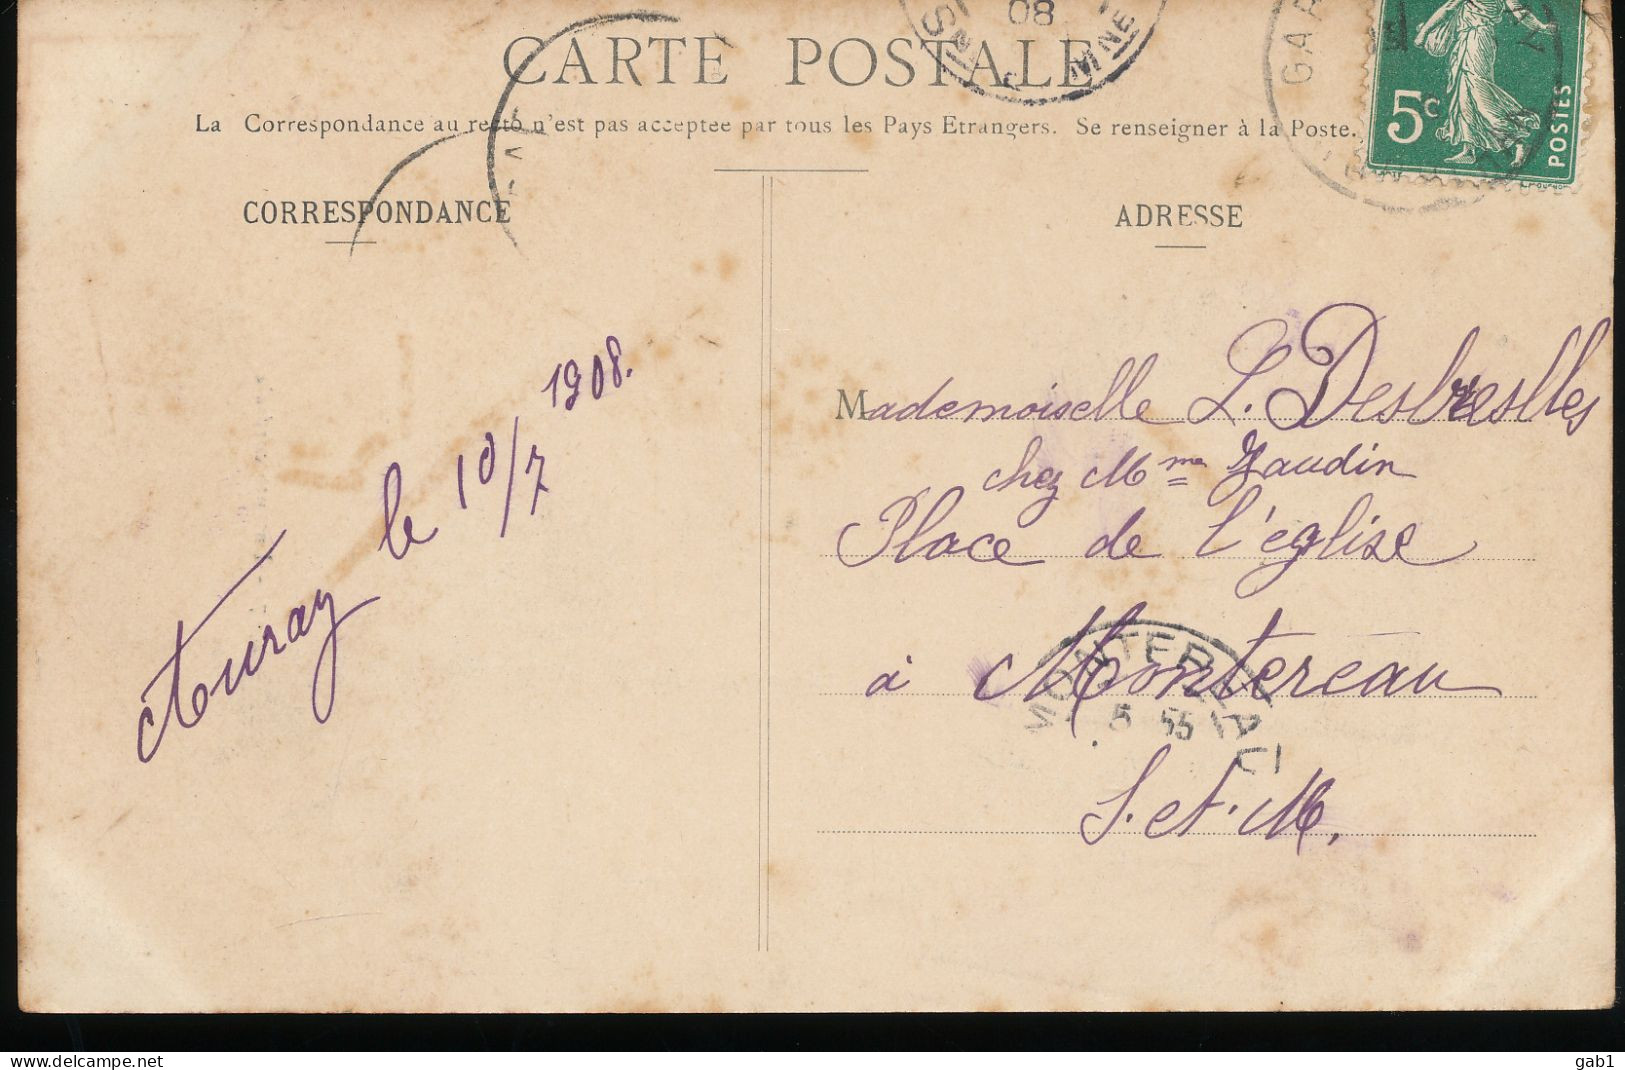 CARTE POSTALE
La Correspondance au recto n'est pas acceptee par tous les Pays Etrangers. Se renseigner à la Poste.
CORRESPONDANCE
Auray le 10/7 1908.
ADRESSE
Mademoiselle L. Desbreslles
chez Mme Gaudin
Place de l'église
à Montereau
S. et. M.
MONTEREAU
5 55
08
SNE MNE
GAR
5c
POSTES
delcampe.net
gab1